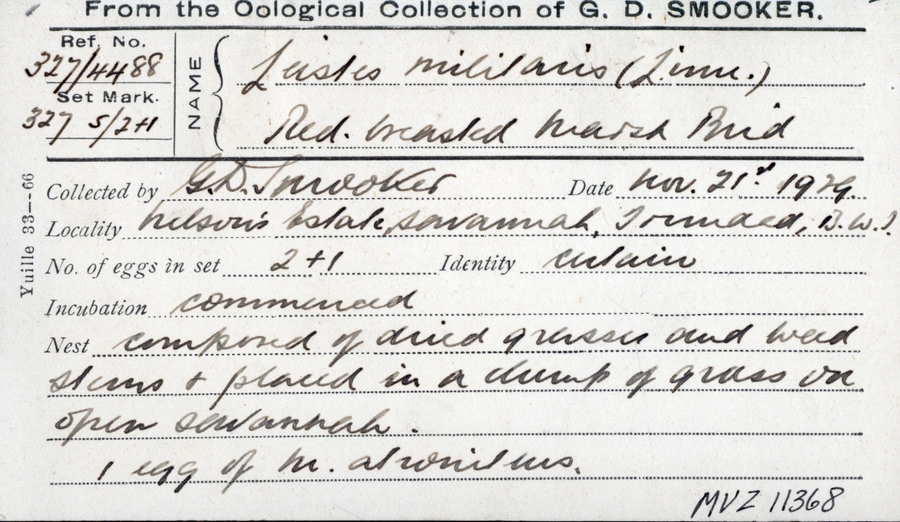 From the Oological Collection of G. D. SMOOKER.
Ref. No.
327/4488
Set Mark.
327 5/2+1
NAME
Leistes militaris (Linn.)
Red. breasted Marsh Bird
Yuille 33--66
Collected by G.D. Smooker Date Nov. 21st 1929.
Locality Nelson's Estate, savannah, Trinidad, B.W.I.
No. of eggs in set 2+1 Identity certain
Incubation commenced
Nest composed of dried grasses and weed
stems + placed in a clump of grass on
open savannah.
1 egg of M. atronitens.
MVZ 11368